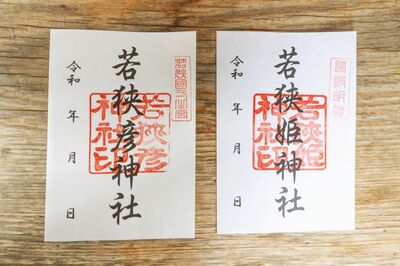 若狭國一之宮
若狭彦神社
若狭彦
神社印
令和 年 月 日
若狭姫神社
若狭姫
神社印
令和 年 月 日